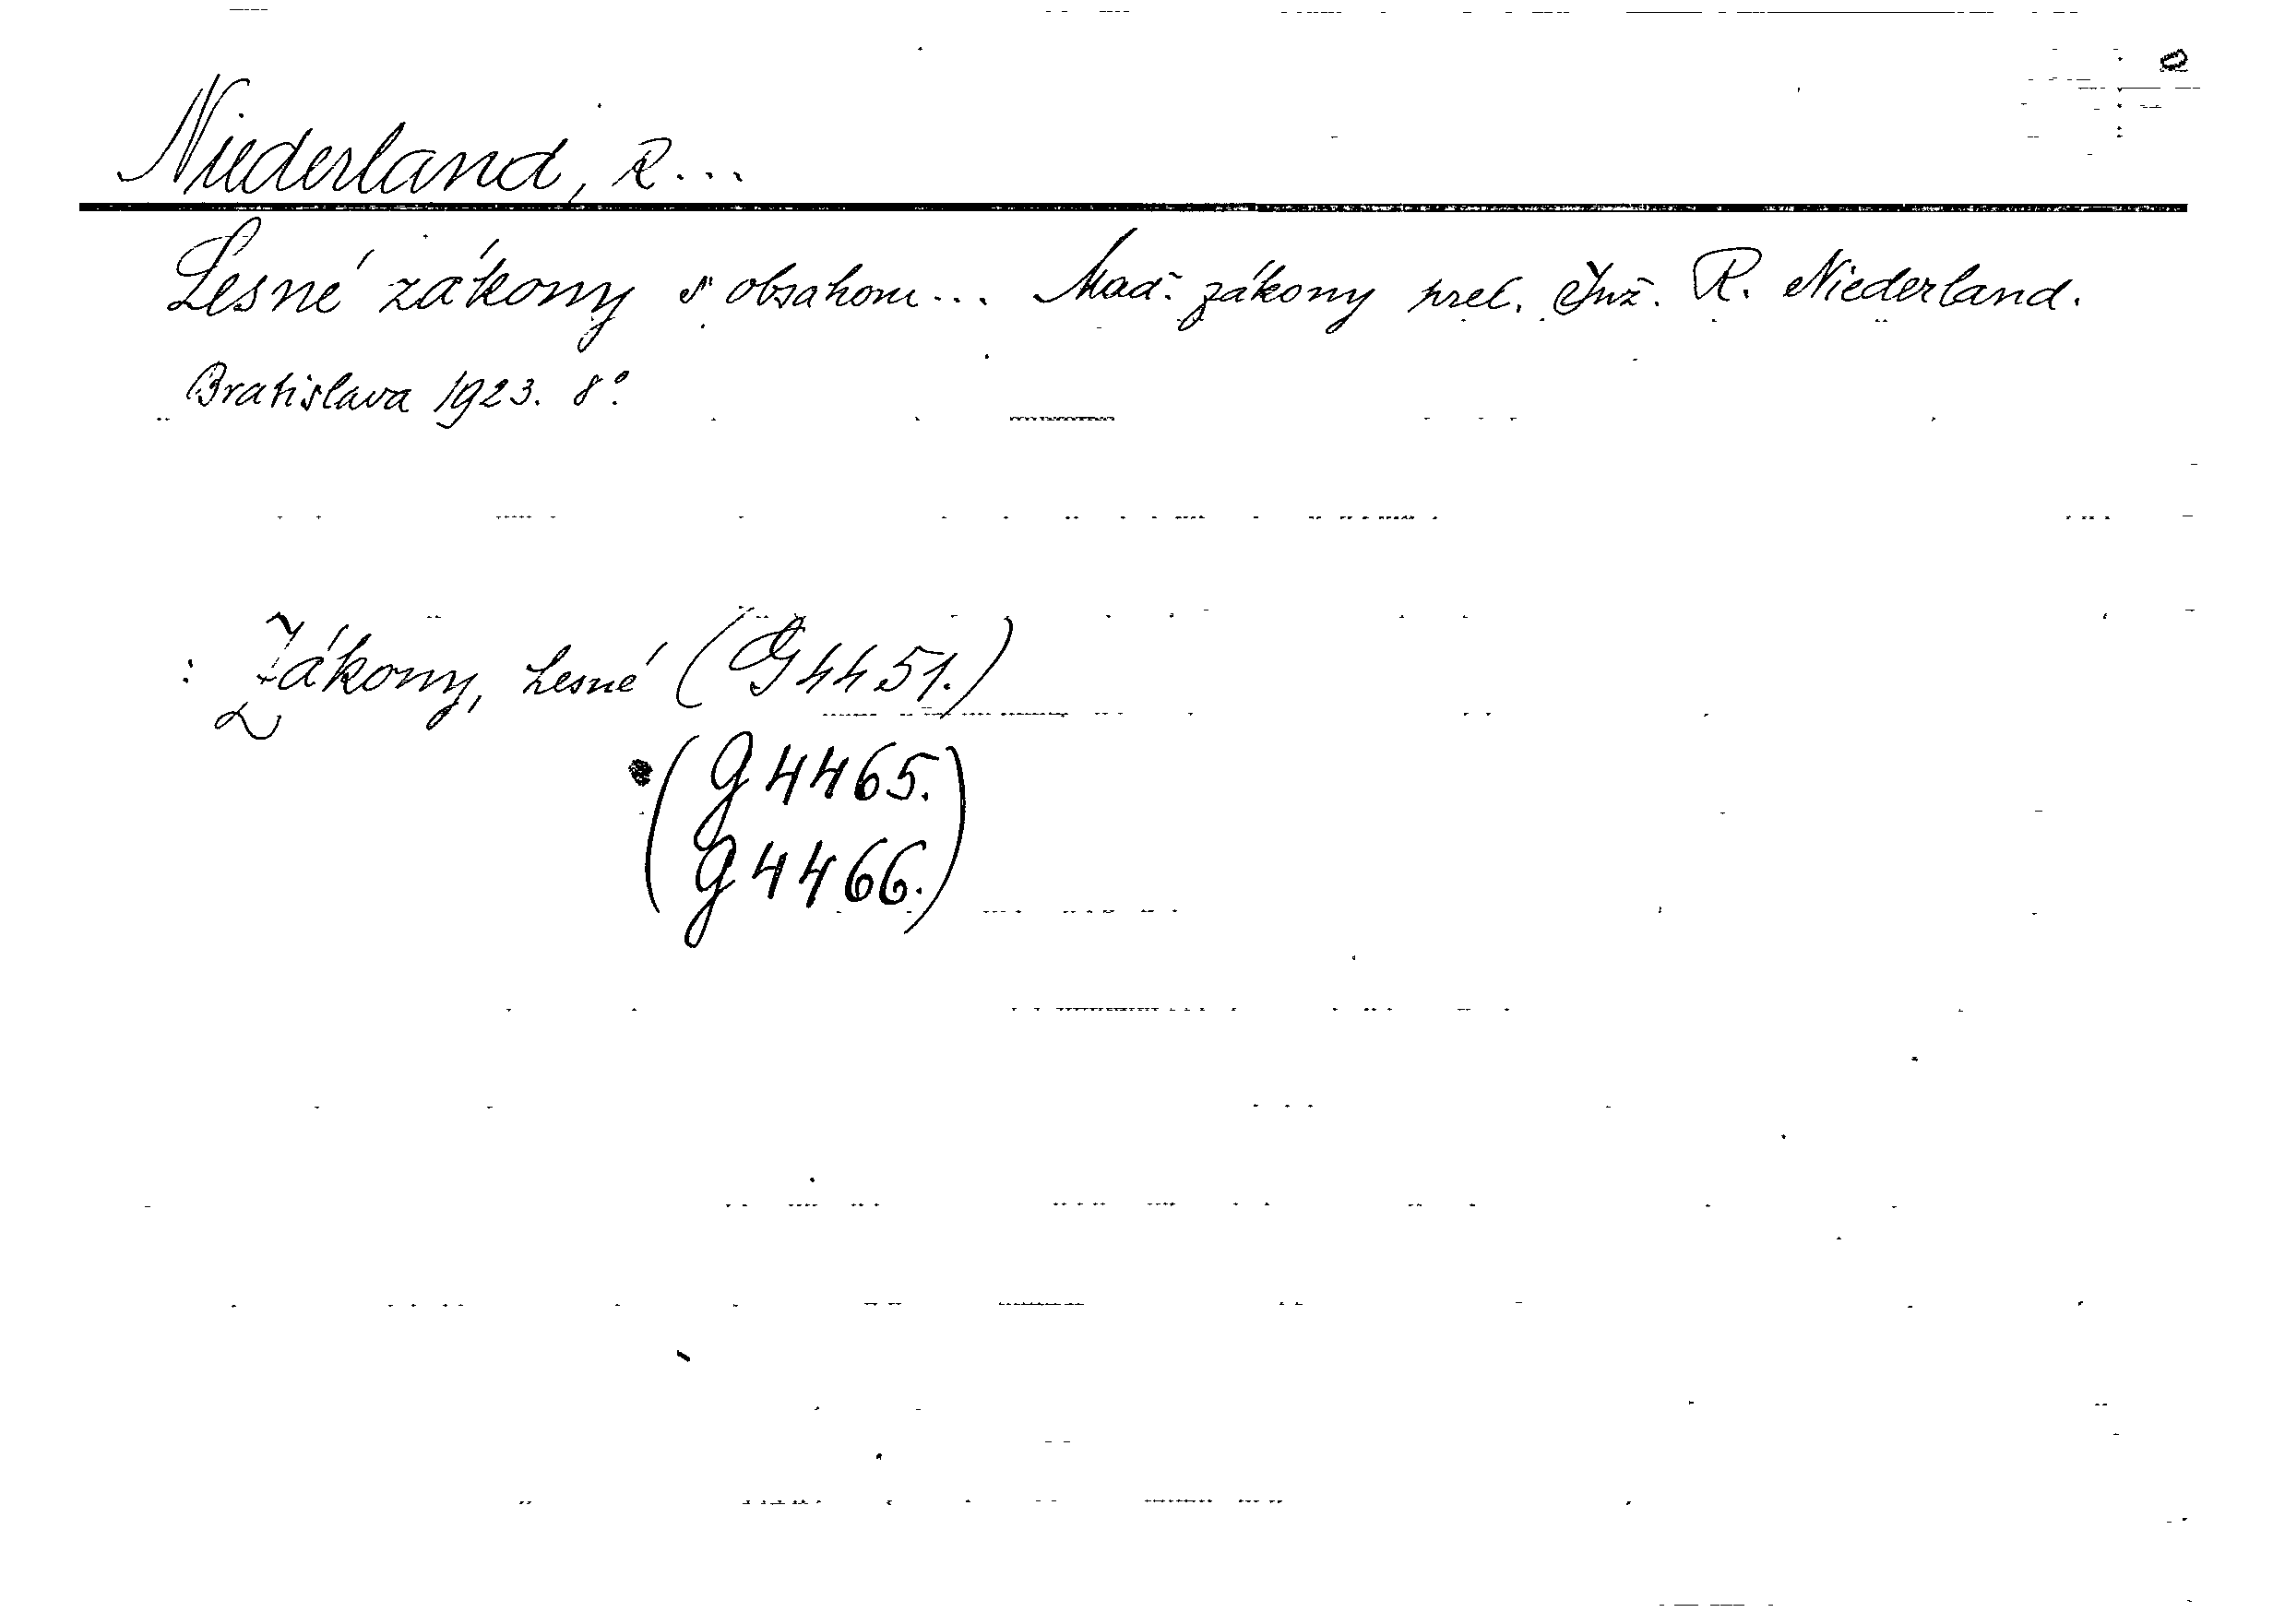 Niederland, R...
Lesné zákony s obsahom... Maď. zákony prel. Inž. R. Niederland.
Bratislava 1923. 8°.
: Zákony, Lesné (G 4451.)
(G 4465.
G 4466.)